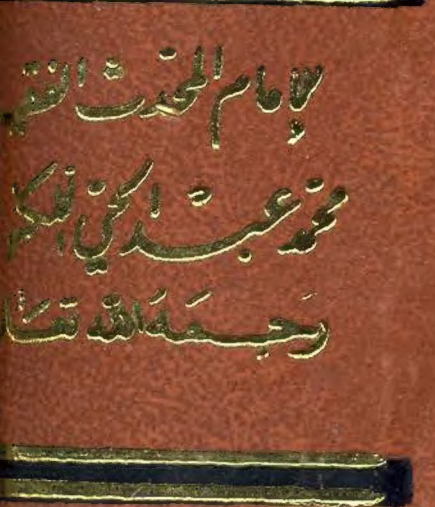 للإمام المحدث الفقي
محمد عبد الحي اللكنو
رحمه الله تعا